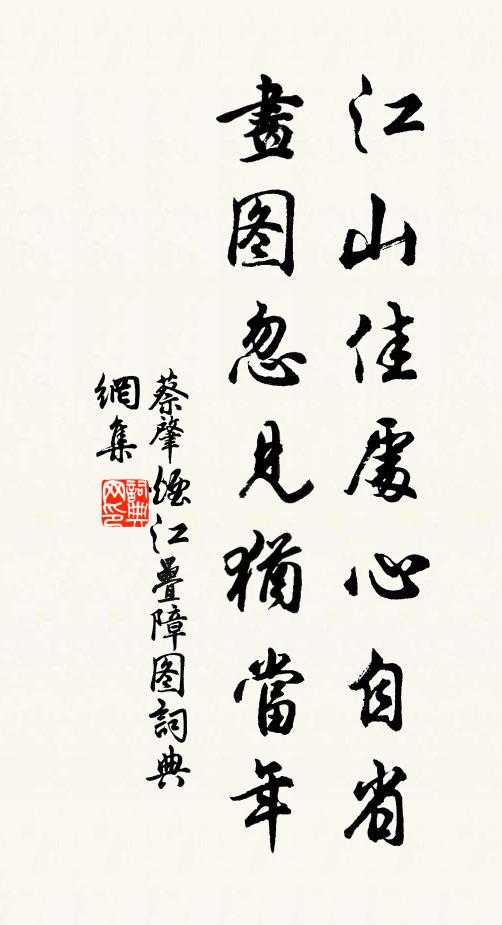 江山佳處心自省
畫图忽見猶當年
蔡肇煙江疊障图詞典
網集
詞典网印